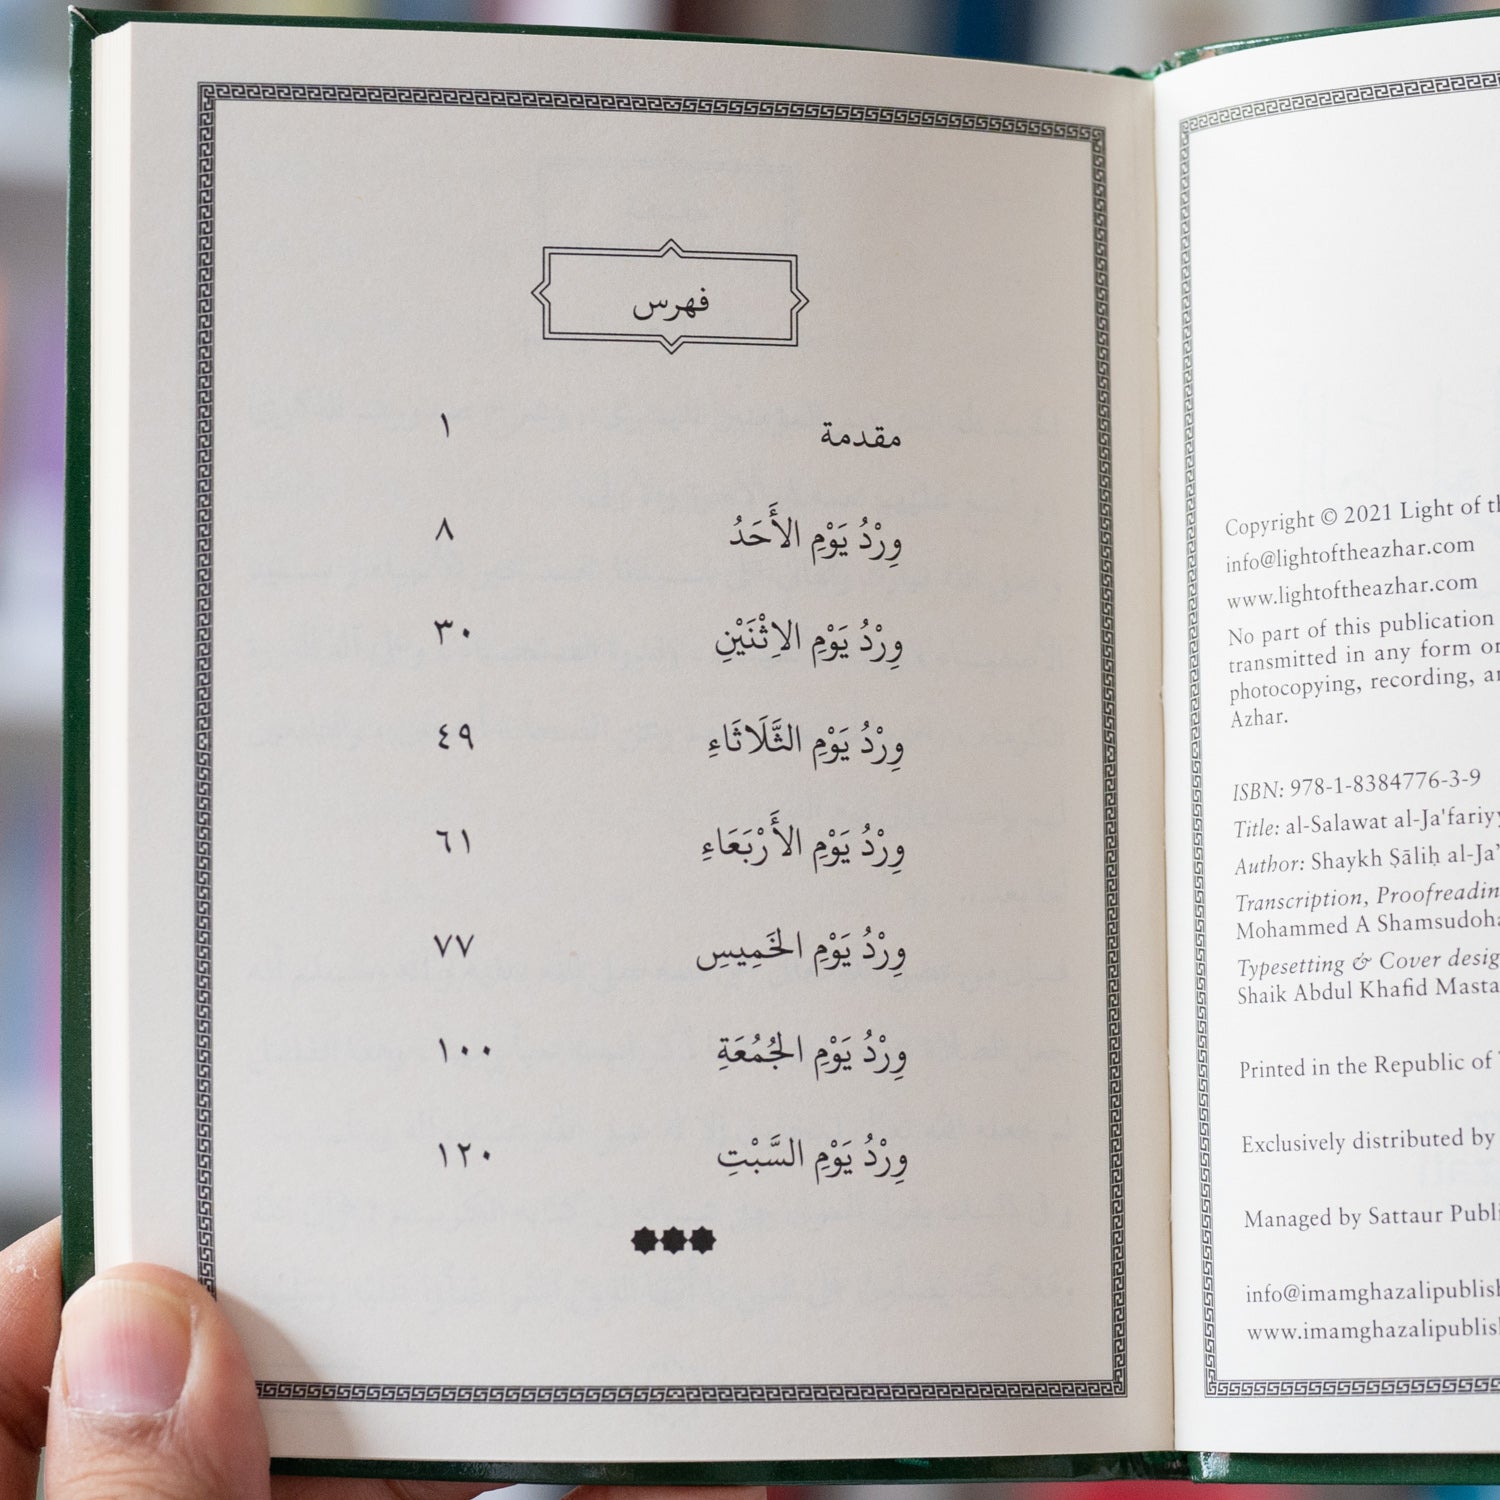 فهرس
مقدمة ١
وِرْدُ يَوْمِ الأَحَدُ ٨
وِرْدُ يَوْمِ الاِثْنَيْنِ ٣٠
وِرْدُ يَوْمِ الثَّلَاثَاءِ ٤٩
وِرْدُ يَوْمِ الأَرْبَعَاءِ ٦١
وِرْدُ يَوْمِ الخَمِيسِ ٧٧
وِرْدُ يَوْمِ الجُمُعَةِ ١٠٠
وِرْدُ يَوْمِ السَّبْتِ ١٢٠
Copyright © 2021 Light of
info@lightoftheazhar.com
www.lightoftheazhar.com
No part of this publication
transmitted in any form or
photocopying, recording,
Azhar.
ISBN: 978-1-8384776-3-9
Title: al-Salawat
Author: Shaykh Ṣāliḥ
Transcription,
Mohammed A
Typesetting & Cover
Shaik Abdul Khafid
Printed in the Republic of
Exclusively distributed by
Managed by Sattaur